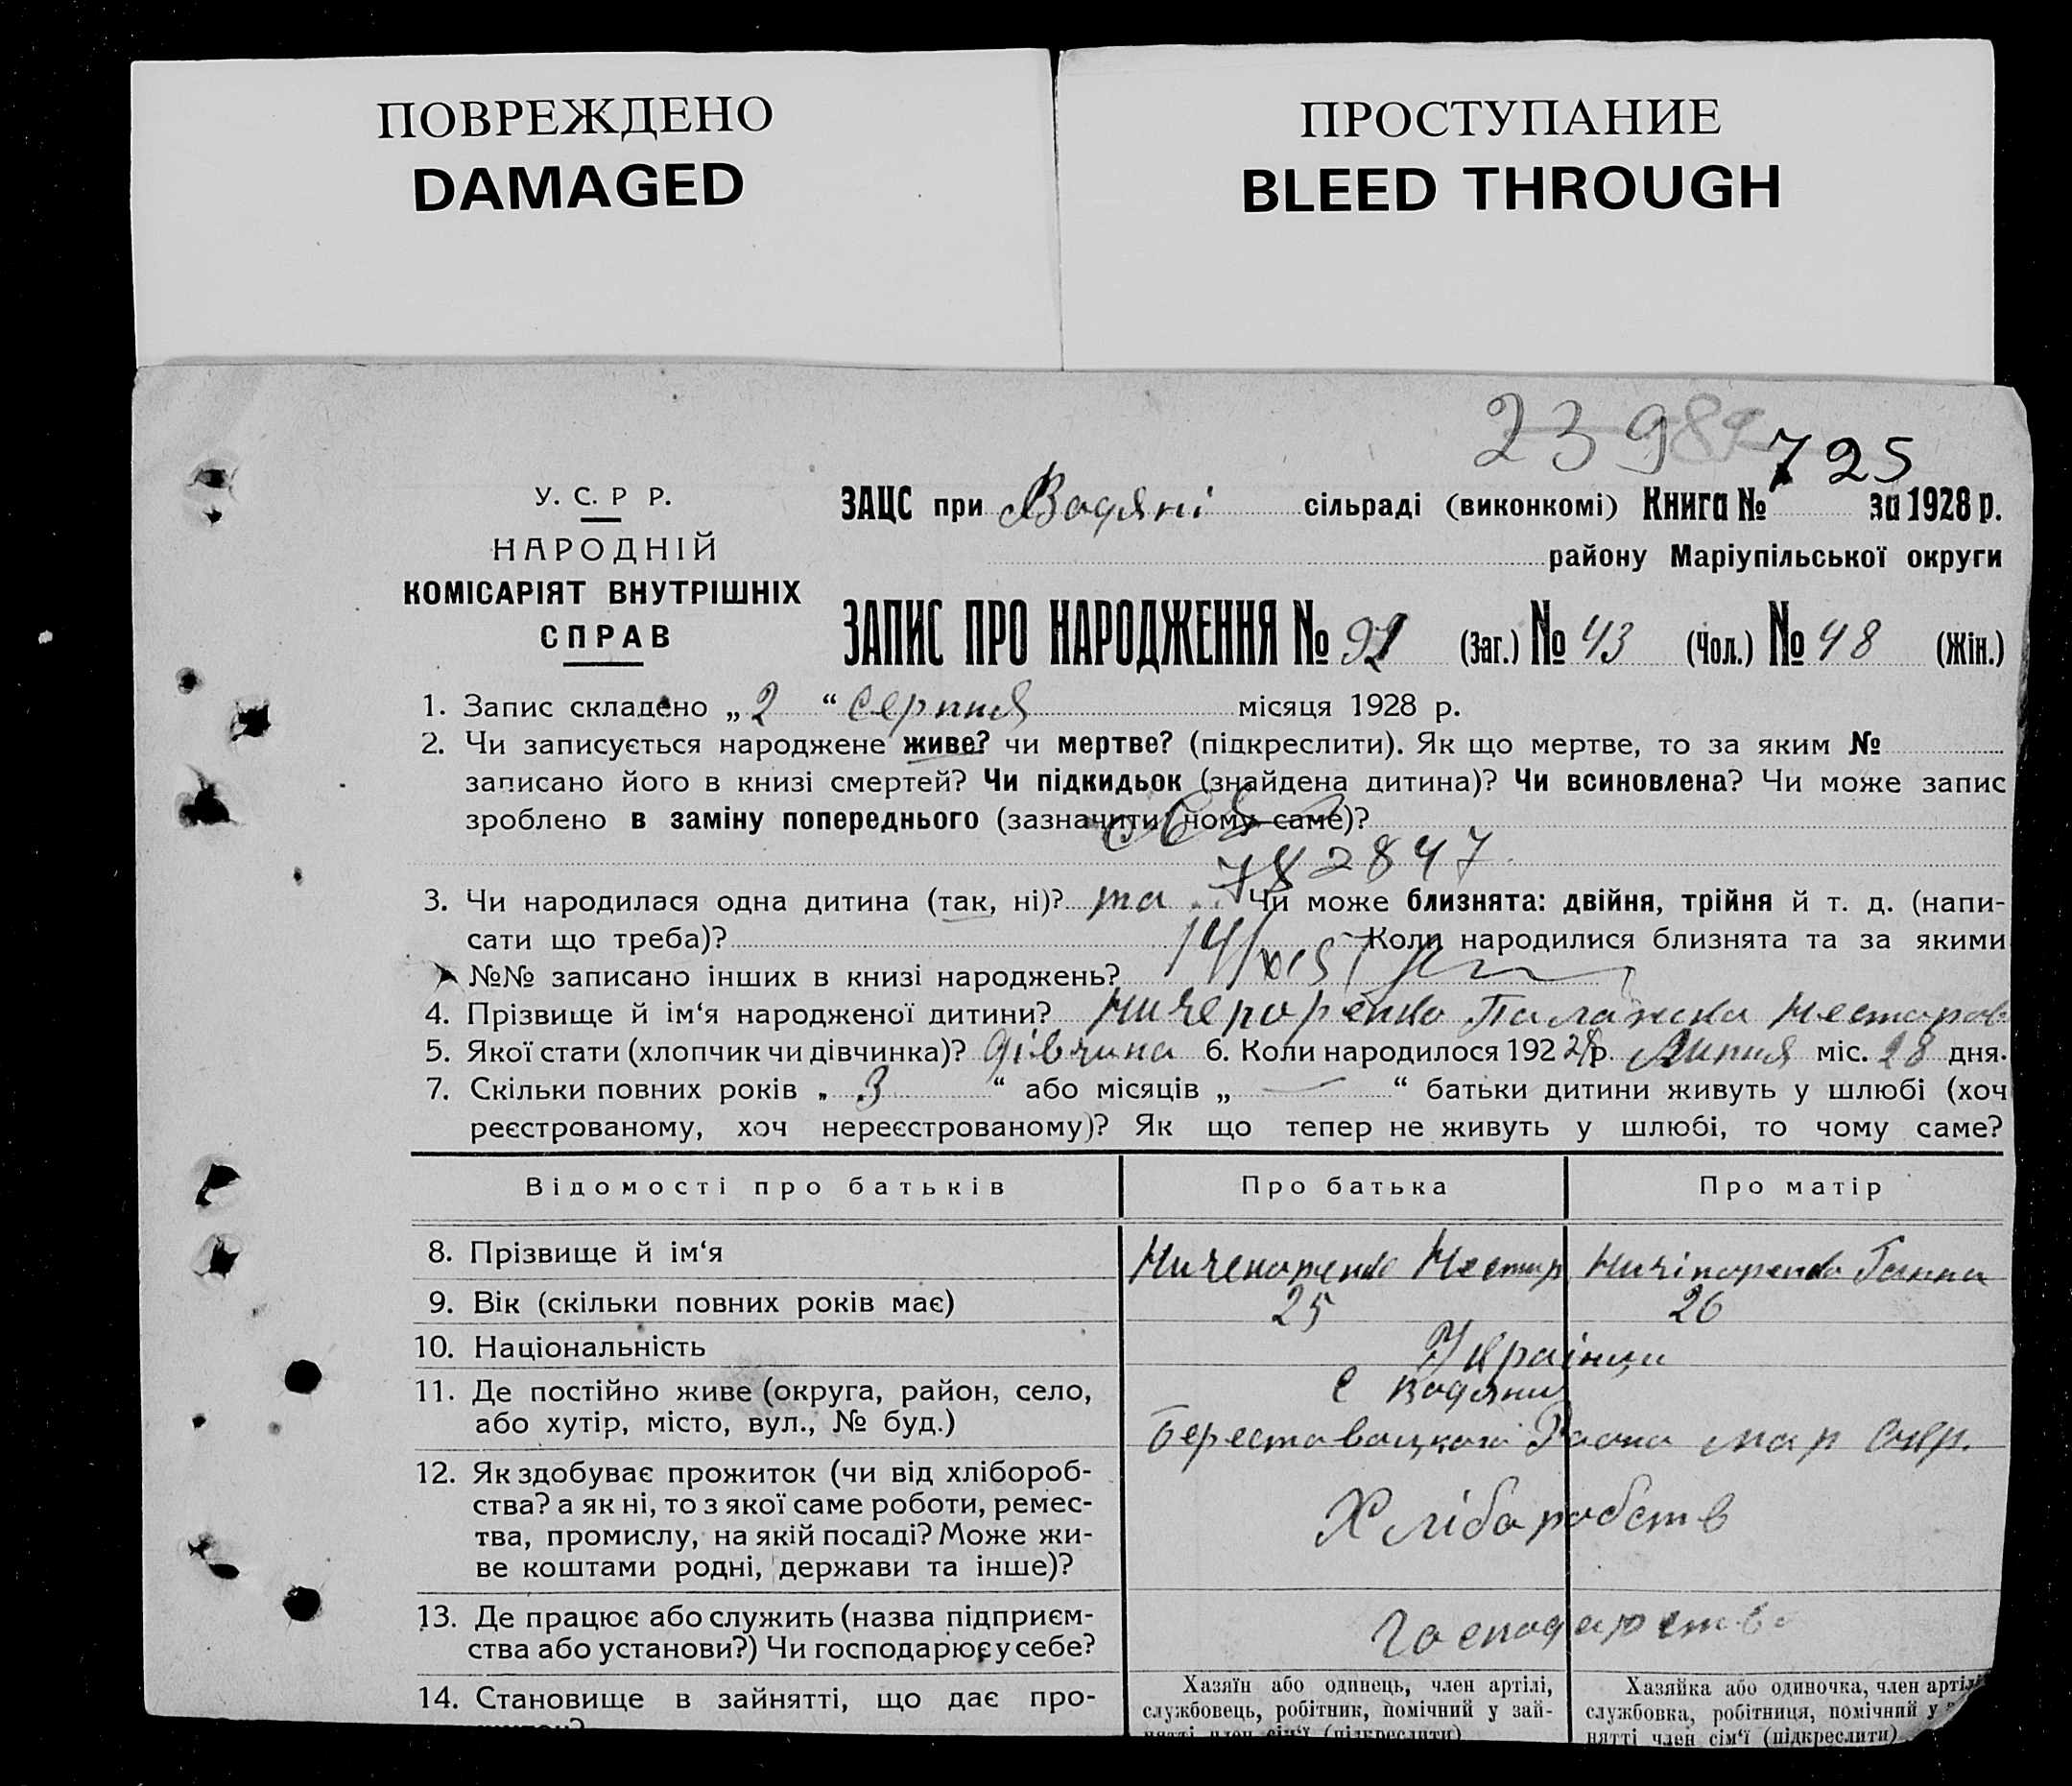 ПОВРЕЖДЕНО
DAMAGED
ПРОСТУПАНИЕ
BLEED THROUGH
239
725
У. С. Р Р.
НАРОДНІЙ
КОМІСАРІЯТ ВНУТРІШНІХ
СПРАВ
ЗАЦС при Водяні сільраді (виконкомі) Книга № за 1928 р.
району Маріупільської округи
ЗАПИС ПРО НАРОДЖЕННЯ № 91 (Заг.) № 43 (Чол.) № 48 (Жін.)
1. Запис складено „ 2 “ серпня місяця 1928 р.
2. Чи записується народжене живе? чи мертве? (підкреслити). Як що мертве, то за яким №
записано його в книзі смертей? Чи підкидьок (знайдена дитина)? Чи всиновлена? Чи може запис
зроблено в заміну попереднього (зазначити чому саме)?
782847
3. Чи народилася одна дитина (так, ні)? та Чи може близнята: двійня, трійня й т. д. (напи-
сати що треба)? Коли народилися близнята та за якими
№№ записано інших в книзі народжень?
4. Прізвище й ім‘я народженої дитини? Ничепоренко Палажка Несторов
5. Якої стати (хлопчик чи дівчинка)? дівчина 6. Коли народилося 192 р. Липня міс. 28 дня.
7. Скільки повних років „ 3 “ або місяців „ — “ батьки дитини живуть у шлюбі (хоч
реєстрованому, хоч нереєстрованому)? Як що тепер не живуть у шлюбі, то чому саме?
Відомості про батьків
Про батька
Про матір
8. Прізвище й ім‘я
Ниченоренко Нестир
Ничіпоренко Ганна
9. Вік (скільки повних років має)
25
26
10. Національність
Українци
11. Де постійно живе (округа, район, село,
або хутір, місто, вул., № буд.)
с Водяни
Берестовацкого Раона мар окр.
12. Як здобуває прожиток (чи від хлібороб-
ства? а як ні, то з якої саме роботи, ремес-
тва, промислу, на якій посаді? Може жи-
ве коштами родні, держави та інше)?
Хліборобств
13. Де працює або служить (назва підприєм-
ства або установи?) Чи господарює у себе?
Господарство
14. Становище в зайнятті, що дає про-
Хазяїн або одинець, член артілі,
службовець, робітник, помічний у зай-
нятті член сім‘ї (підкреслити)
Хазяйка або одиночка, член артілі
службовка, робітниця, помічний у
нятті член сім‘ї (підкреслити)